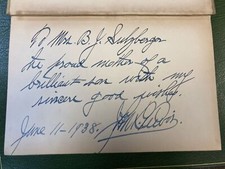 To Mrs. B. J. Sulzberger
the proud mother of a
brilliant son with my
sincere good wishes.
June 11 - 1938.